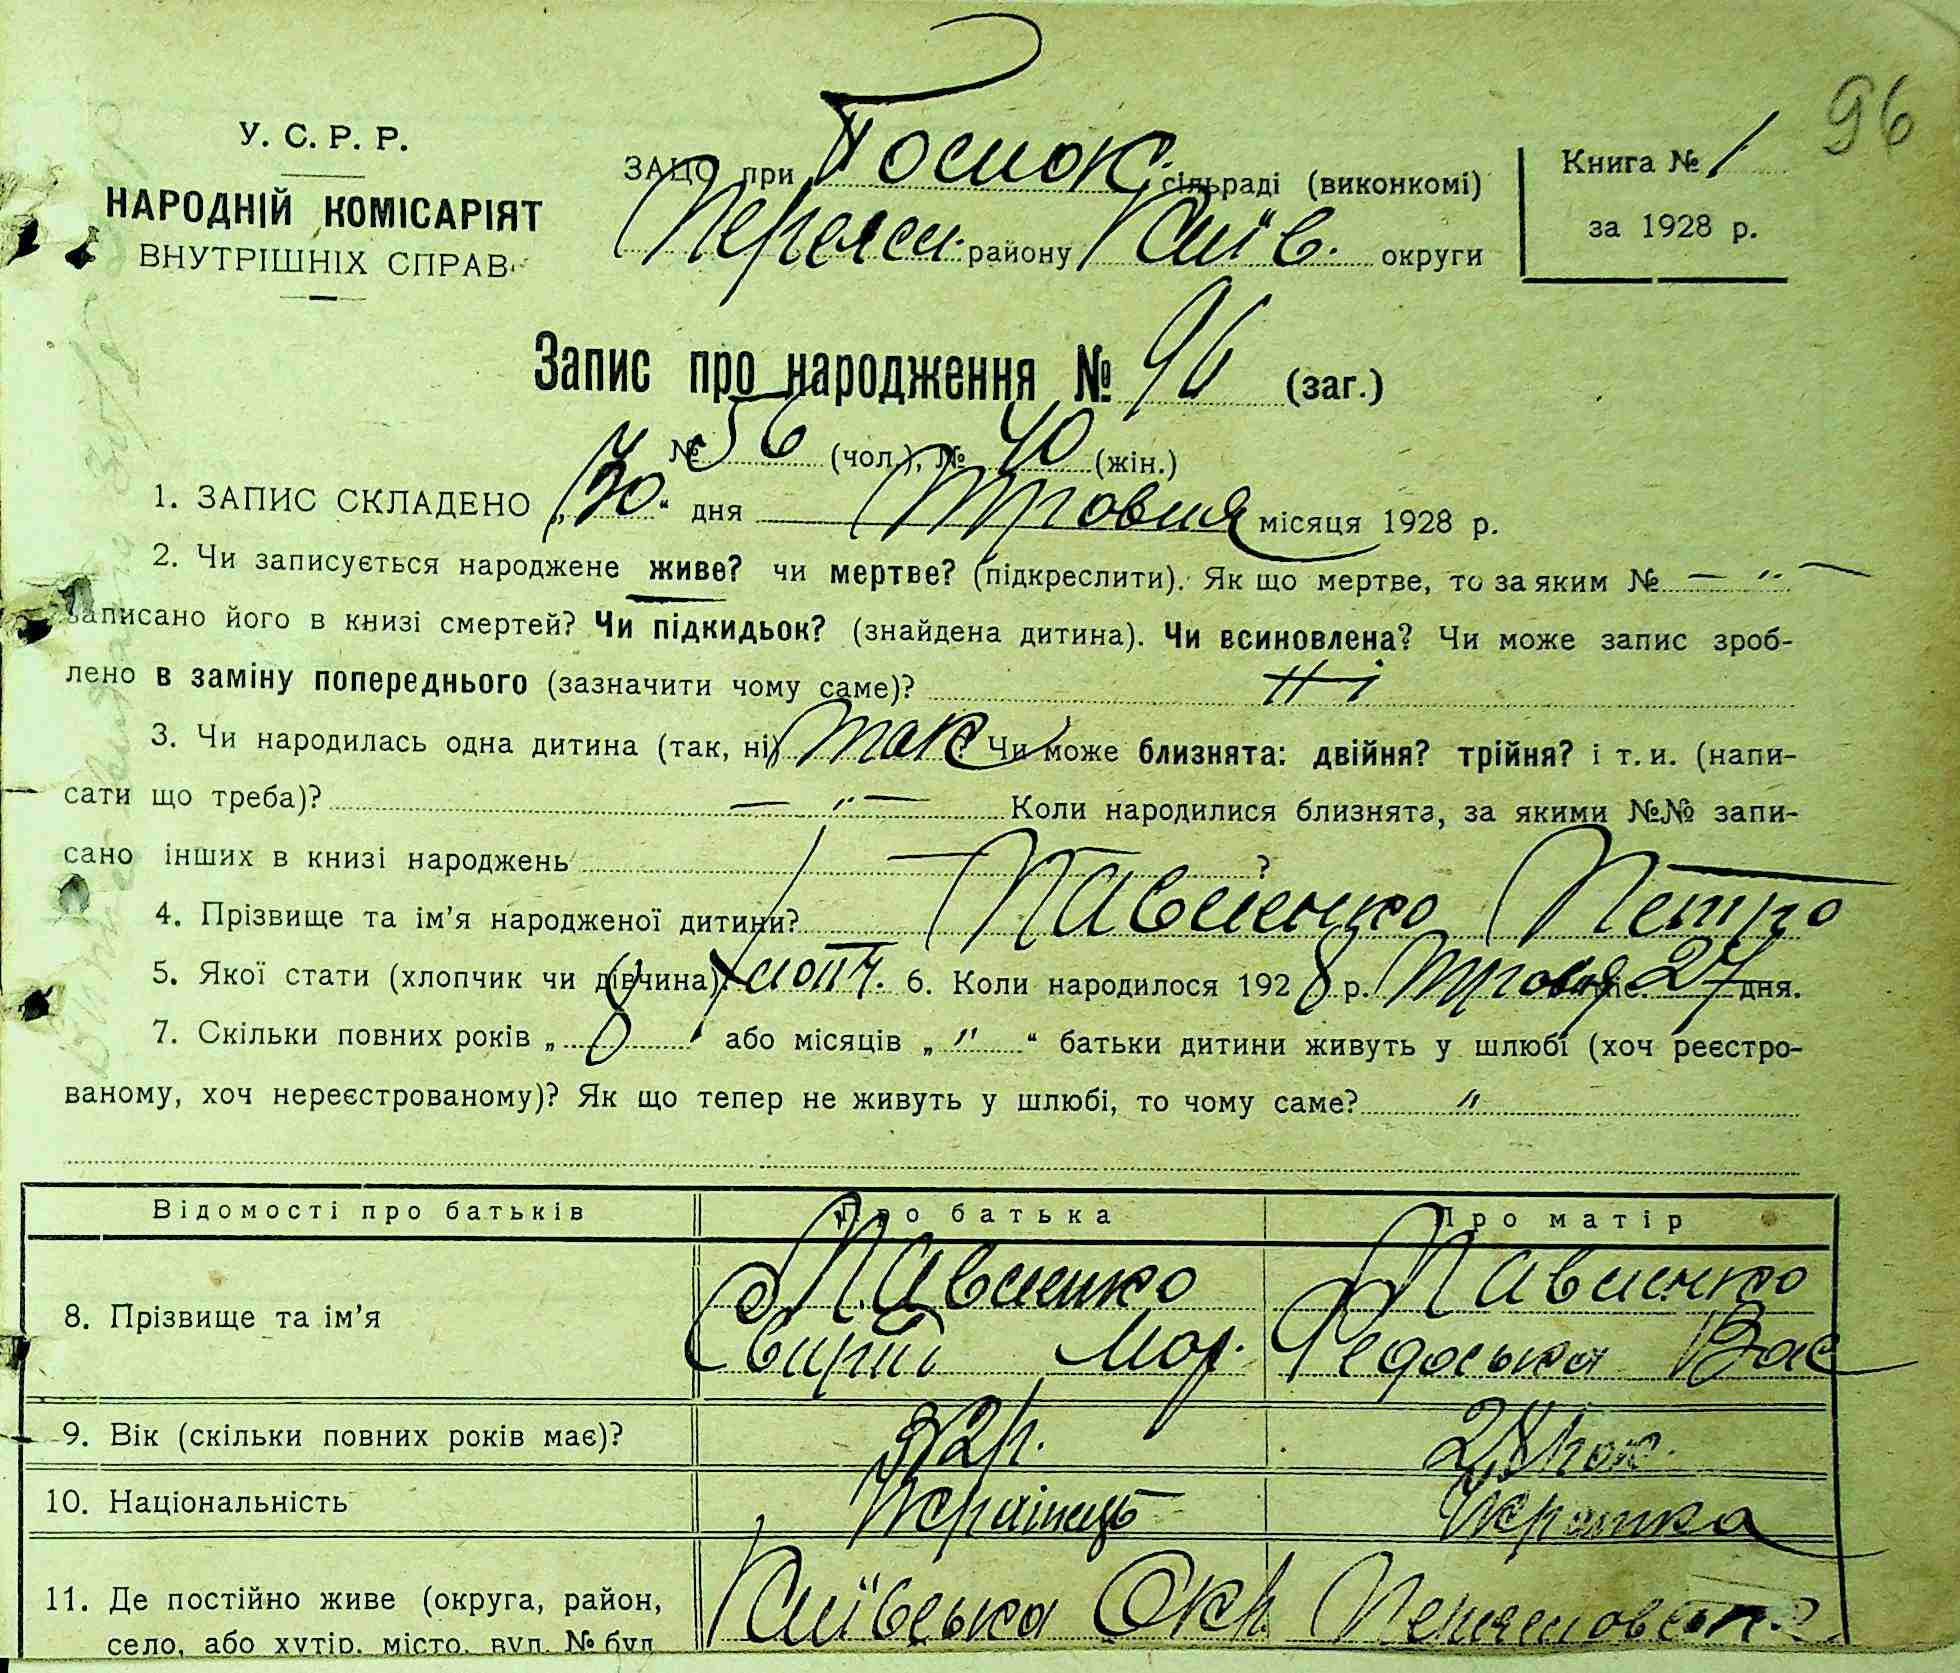 96
У. С. Р. Р.
НАРОДНІЙ КОМІСАРІЯТ
ВНУТРІШНІХ СПРАВ
ЗАЦО при сільраді (виконкомі)
Переясл. району Київ. округи
Книга № 1
за 1928 р.
Запис про народження № 96 (заг.)
№ 56 (чол.), № 40 (жін.)
1. ЗАПИС СКЛАДЕНО „30“ дня Травня місяця 1928 р.
2. Чи записується народжене живе? чи мертве? (підкреслити). Як що мертве, то за яким № — " —
записано його в книзі смертей? Чи підкидьок? (знайдена дитина). Чи всиновлена? Чи може запис зроб-
лено в заміну попереднього (зазначити чому саме)? Ні
3. Чи народилась одна дитина (так, ні) так Чи може близнята: двійня? трійня? і т. и. (напи-
сати що треба)? — " — Коли народилися близнята, за якими №№ запи-
сано інших в книзі народжень — ?
4. Прізвище та ім'я народженої дитини? Павленко Петро
5. Якої стати (хлопчик чи дівчина) хлопч. 6. Коли народилося 1928 р. Травня міс. 27 дня.
7. Скільки повних років „8“ або місяців „ " “ батьки дитини живуть у шлюбі (хоч реєстро-
ваному, хоч нереєстрованому)? Як що тепер не живуть у шлюбі, то чому саме? "
Відомості про батьків Про батька Про матір
8. Прізвище та ім'я Павленко Павленко
Свирид Федоська Вас
9. Вік (скільки повних років має)? 32 р. 28 рок.
10. Національність Українець Українка
11. Де постійно живе (округа, район, Київська Окр.
село, або хутір, місто, вул. № буд